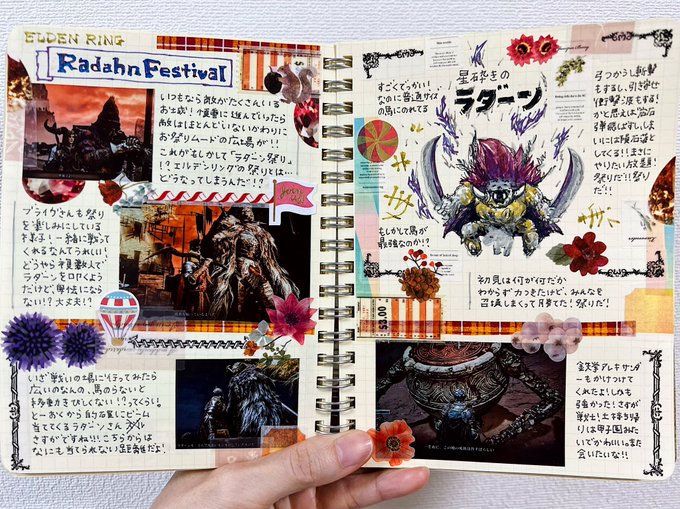 ELDEN RING
Radahn Festival
いつもなら敵がたくさんいる
お城が!慎重に進んでいったら
敵はほとんどいないかわりに
お祭りムードの広場が!!
これがもしかして「ラダーン祭り」
!?エルデンリングの祭りとは…
どうなってしまうんだ!?
Join us
ブライヴさんも祭り
を楽しみにしている
様子!一緒に戦って
くれるなんてうれしい!
どうやら複数人で
ラダーンをボコるよう
だけど、卑怯になら
ない!?大丈夫!?
いざ戦いの場に行ってみたら
広いのなんの、馬のらないと
きびしくない!?ってくらい。
とーおくから的確にビーム
当ててくるラダーンさん
さすがですね!!!こちらからは
なにも当てられない距離だよ!
星砕きの
ラダーン
すごくでっかい!
なのに普通サイズ
の馬にのれてる
もしかして馬が
最強なのか!?
弓つかうし斬撃
もするし、引き寄せ
衝撃波もする!
かと思えば岩石
弾飛ばすし、しま
いには隕石落と
してくる!!まさに
やりたい放題!
祭りだ!!祭り
だ!!
初見は何が何だか
わからず力つきたけど、みんなを
召喚しまくって勝てた!祭りだ!
$2.00
鉄拳アレキサンダ
ーもかけつけて
くれたよ!しかも
強かった!さすが
戦士!土持ち帰
りは甲子園みた
いでかわいい。また
会いたいな!!